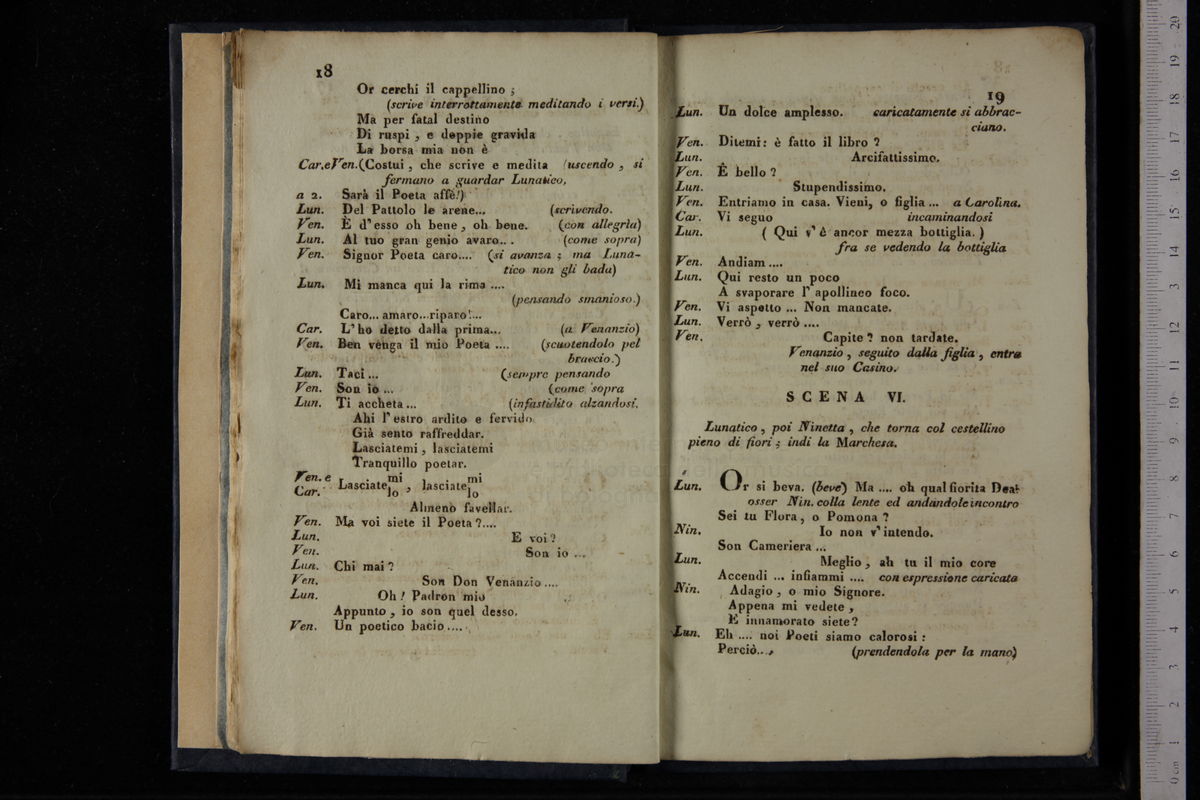 18
Or cerchi il cappellino ;
(scrive interrottamente meditando i versi.)
Ma per fatal destino
Di ruspi , e doppie gravida
La borsa mia non è
Car.eVen.(Costui , che scrive e medita (uscendo , si
fermano a guardar Lunatico,
a 2. Sarà il Poeta affè!)
Lun. Del Pattolo le arene... (scrivendo.
Ven. È d' esso oh bene , oh bene. (con allegria)
Lun. Al tuo gran genio avaro... (come sopra)
Ven. Signor Poeta caro.... (si avanza ; ma Luna-
tico non gli bada)
Lun. Mi manca qui la rima ....
(pensando smanioso.)
Caro... amaro...riparo!...
Car. L' ho detto dalla prima... (a Venanzio)
Ven. Ben venga il mio Poeta .... (scuotendolo pel
braccio.)
Lun. Taci ... (sempre pensando
Ven. Son io ... (come sopra
Lun. Ti accheta ... (infastidito alzandosi.
Ahi l' estro ardito e fervido
Già sento raffreddar.
Lasciatemi , lasciatemi
Tranquillo poetar.
Ven. e mi mi
Car. Lasciatelo , lasciatelo
Almeno favellar.
Ven. Ma voi siete il Poeta ?....
Lun. E voi ?
Ven. Son io ...
Lun. Chi mai ?
Ven. Son Don Venanzio ....
Lun. Oh ! Padron mio
Appunto , io son quel desso.
Ven. Un poetico bacio ....
19
Lun. Un dolce amplesso. caricatamente si abbrac-
ciano.
Ven. Ditemi : è fatto il libro ?
Lun. Arcifattissimo.
Ven. È bello ?
Lun. Stupendissimo.
Ven. Entriamo in casa. Vieni, o figlia ... a Carolina.
Car. Vi seguo incaminandosi
Lun. ( Qui v' è ancor mezza bottiglia. )
fra se vedendo la bottiglia
Ven. Andiam ....
Lun. Qui resto un poco
A svaporare l' apollineo foco.
Ven. Vi aspetto ... Non mancate.
Lun. Verrò , verrò ....
Ven. Capite ? non tardate.
Venanzio , seguito dalla figlia , entra
nel suo Casino.
SCENA VI.
Lunatico , poi Ninetta , che torna col cestellino
pieno di fiori ; indi la Marchesa.
Lun. Or si beva. (beve) Ma .... oh qual fiorita Dea!
osser Nin. colla lente ed andandole incontro
Sei tu Flora , o Pomona ?
Nin. Io non v' intendo.
Son Cameriera ...
Lun. Meglio , ah tu il mio core
Accendi ... infiammi .... con espressione caricata
Nin. Adagio , o mio Signore.
Appena mi vedete ,
E innamorato siete ?
Lun. Eh .... noi Poeti siamo calorosi :
Perciò... (prendendola per la mano)